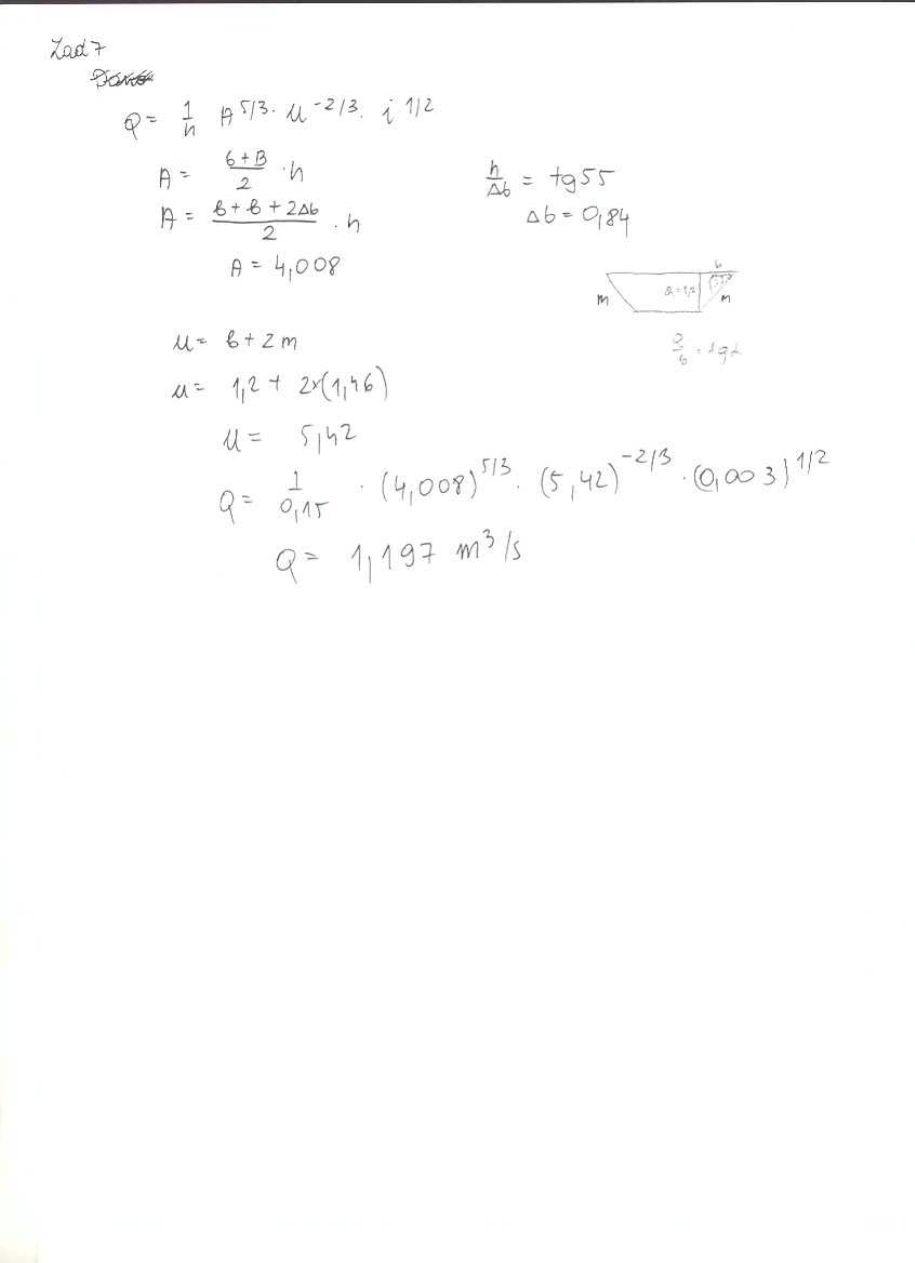 Zad 7
Q = 1/n A^5/3 · u^-2/3 · i^1/2
A = (b+B)/2 · h
A = (b+b+2Δb)/2 · h
A = 4,008
h/Δb = tg55
Δb = 0,84
b
m
m
u = b + 2m
u = 1,2 + 2×(1,46)
u = 5,42
Q = 1/0,15 · (4,008)^5/3 · (5,42)^-2/3 · (0,003)^1/2
Q = 1,197 m³/s